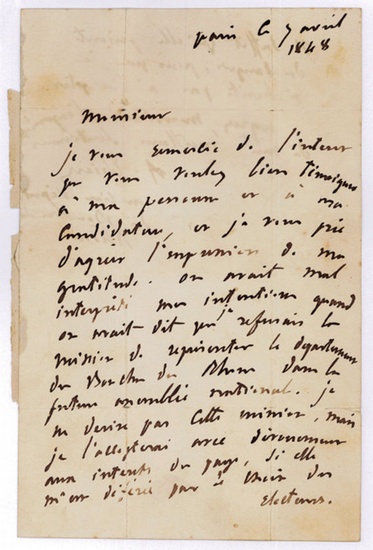 paris le 7 avril
1848
Monsieur
je vous remercie de l'interet
que vous voulez bien témoigner
à ma personne et à ma
Candidature, et je vous prie
d'agréer l'expression de ma
gratitude. on avait mal
interprété mes intentions quand
on avait dit que je refusais la
mission de représenter le département
des Bouches du Rhone dans la
future assemblée national. je
ne desire pas cette mission, mais
je l'accepterai avec dévouement
aux interets du pays, si elle
m'est déférée par le choix des
electeurs.